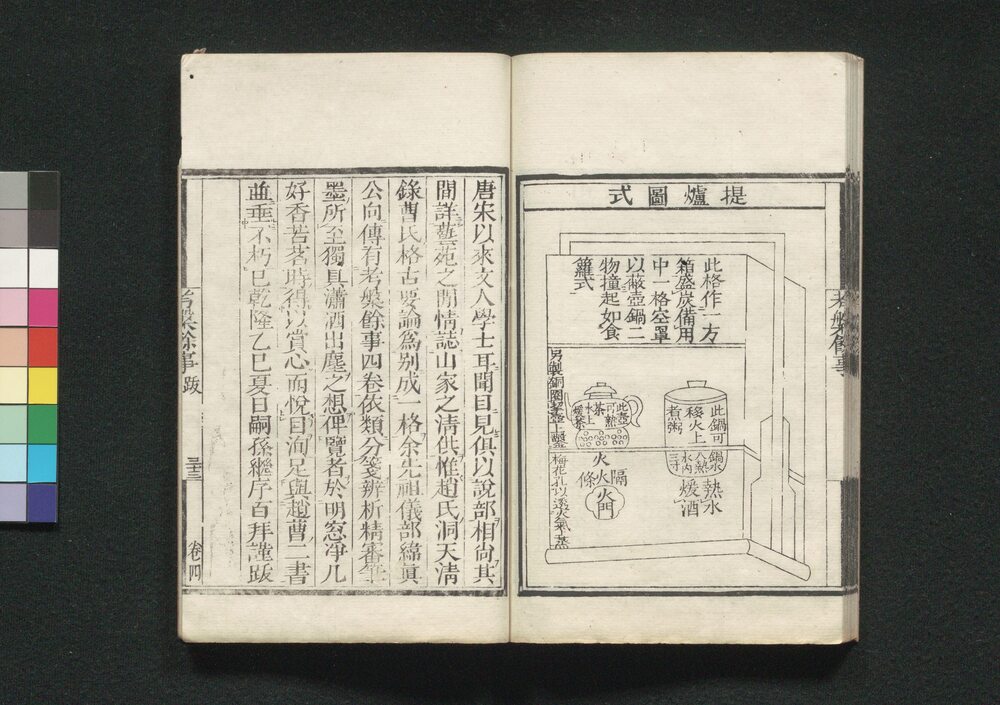 提爐圖式
此格作一方
箱盛炭備用
中一格空罩
以蔽壺鍋二
物撞起如食
籮式
此鍋可
移火上
煮粥
鍋水
入熱
水內
三寸
熱水
煖酒
此壺
可熱
茶
水上
煖茶
火
隔火條
火門
另製銅圈茶壺上鑿
梅花孔以透火氣蒸
考槃餘事
唐宋以來文人學士耳聞目見俱以說部相尙其
間詳藝苑之閒情誌山家之清供惟趙氏洞天清
錄曹氏格古要論爲别成一格余先祖儀部緯眞
公向傳有考槃餘事四卷依類分箋辨析精審筆
墨所至獨具瀟洒出塵之想俾覽者於明窓凈几
好香苦茗時得以賞心而悅目洵足與趙曹二書
並垂不朽已乾隆乙巳夏日嗣孫繼序百拜謹跋
考槃餘事 跋
三十三
卷四